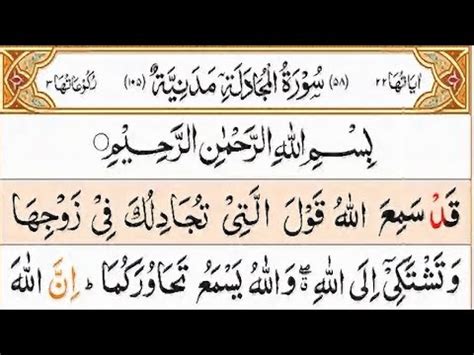 اٰیَاتُهَا ۲۲ (۵۸) سُوْرَةُ الْمُجَادَلَةِ مَدَنِيَّةٌ (۱۰۵) رُكُوْعَاتُهَا ۳
بِسْمِ اللهِ الرَّحْمٰنِ الرَّحِيْمِ
قَدْ سَمِعَ اللهُ قَوْلَ الَّتِيْ تُجَادِلُكَ فِيْ زَوْجِهَا
وَتَشْتَكِيْٓ اِلَى اللهِ ۖۗ وَاللهُ يَسْمَعُ تَحَاوُرَكُمَا ؕ اِنَّ اللهَ